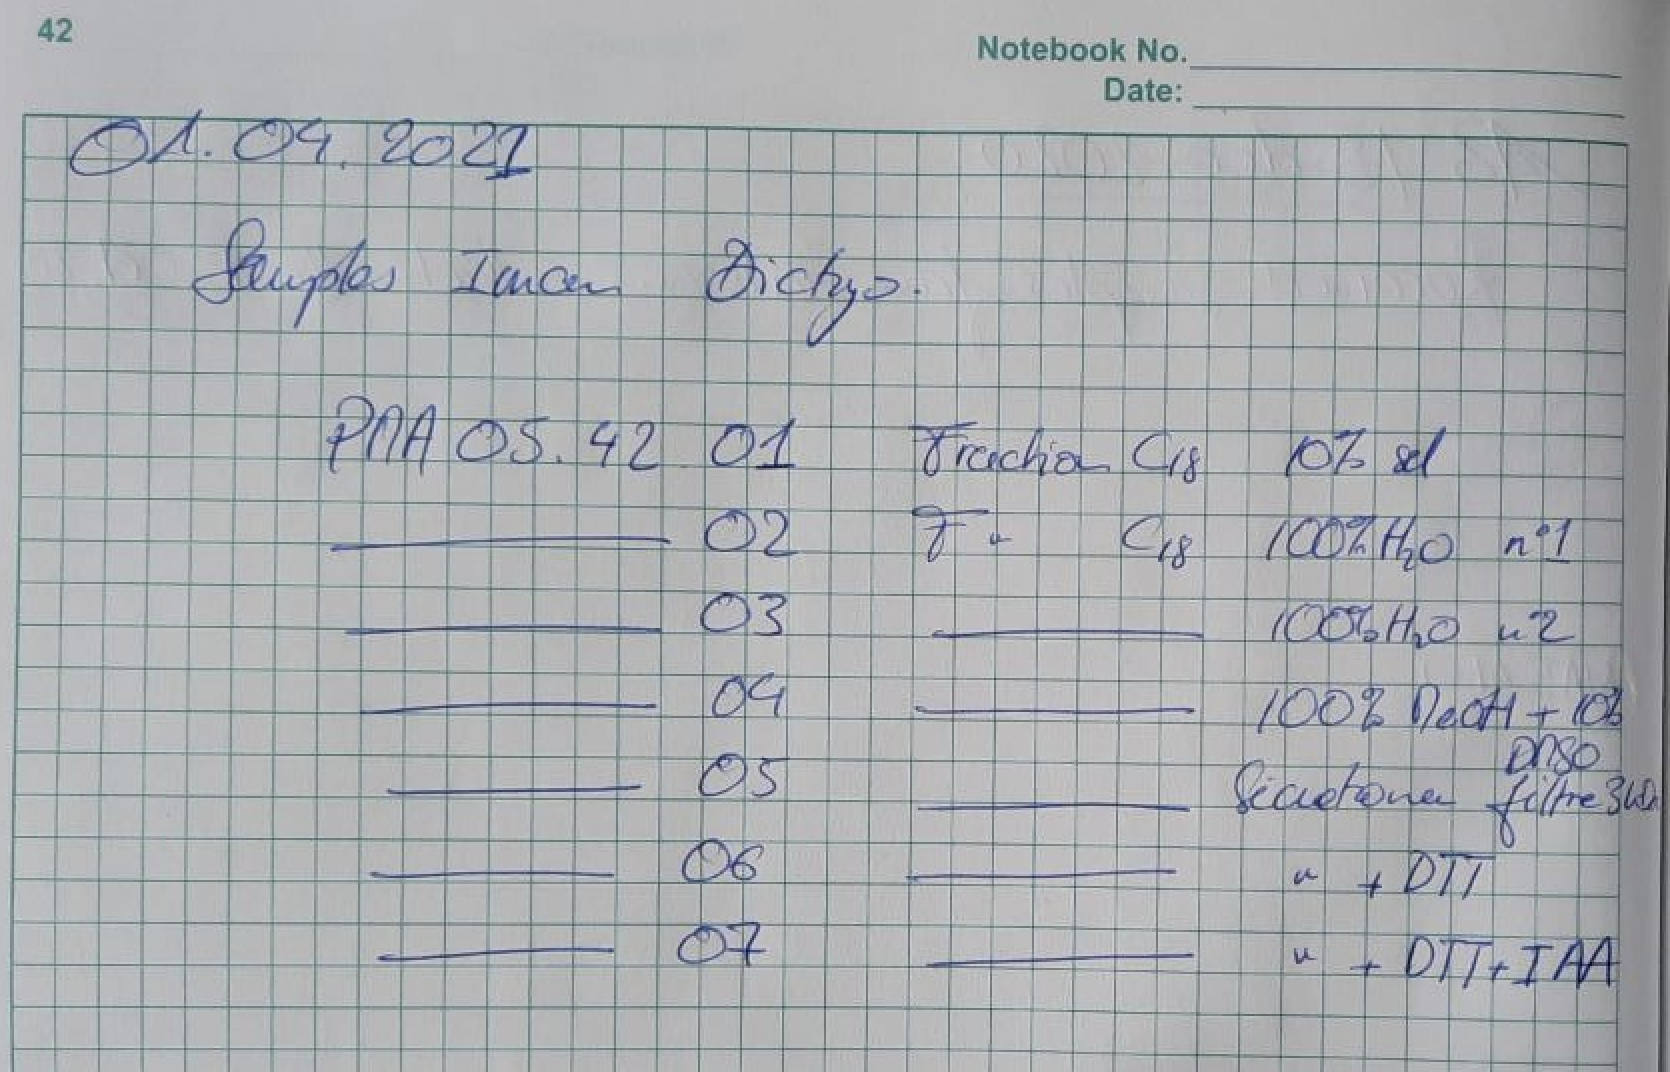 42
Notebook No.
Date:
01.04.2021
Samples Iman Dictyo.
PMA 05.42 01 Fraction C18 10% sel
02 F " C18 100% H2O n°1
03 100% H2O n°2
04 100% MeOH + 10%
DMSO
05 filtre 3kDa
06 " + DTT
07 " + DTT + IAA